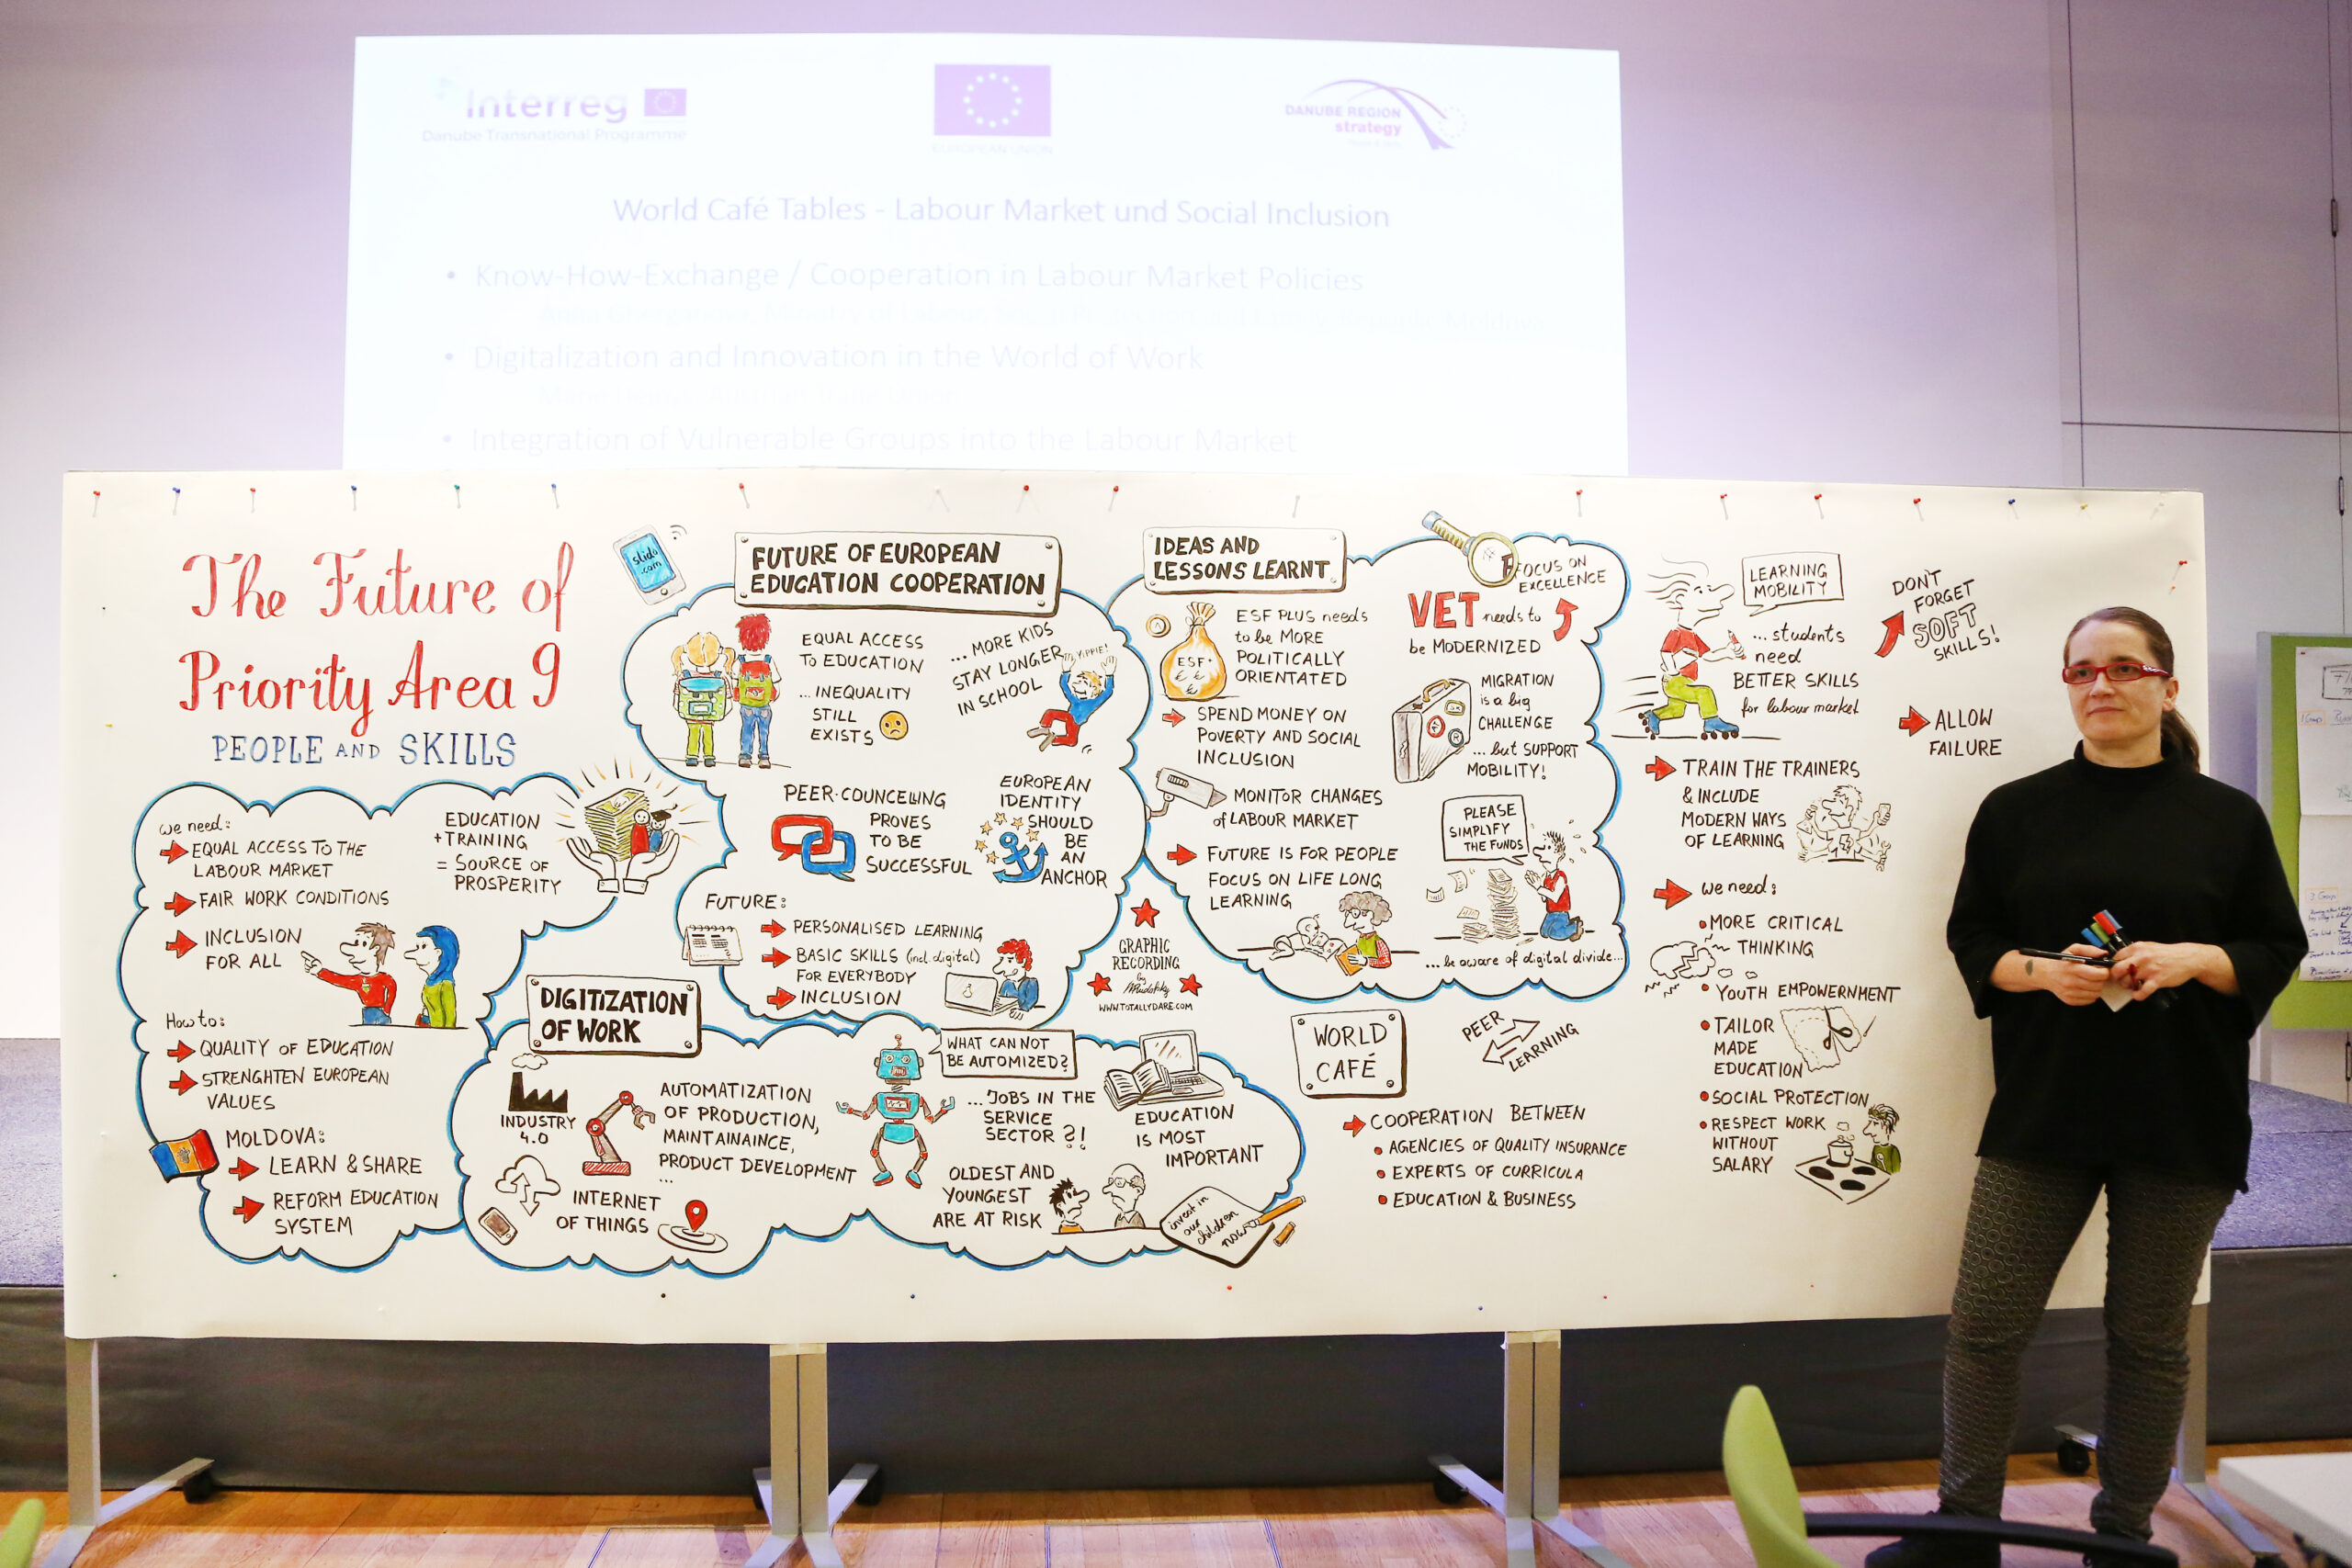 Interreg
Danube Transnational Programme
EUROPEAN UNION
DANUBE REGION
strategy
World Café Tables - Labour Market und Social Inclusion
• Know-How-Exchange / Cooperation in Labour Market Policies
• Digitalization and Innovation in the World of Work
• Integration of Vulnerable Groups into the Labour Market
The Future of
Priority Area 9
PEOPLE AND SKILLS
we need:
EQUAL ACCESS TO THE
LABOUR MARKET
FAIR WORK CONDITIONS
INCLUSION
FOR ALL
EDUCATION
+TRAINING
= SOURCE OF
PROSPERITY
How to:
QUALITY OF EDUCATION
STRENGHTEN EUROPEAN
VALUES
MOLDOVA:
LEARN & SHARE
REFORM EDUCATION
SYSTEM
slido
.com
FUTURE OF EUROPEAN
EDUCATION COOPERATION
EQUAL ACCESS
TO EDUCATION
...INEQUALITY
STILL
EXISTS
... MORE KIDS
STAY LONGER
IN SCHOOL
YIPPIE!
PEER-COUNCELLING
PROVES
TO BE
SUCCESSFUL
EUROPEAN
IDENTITY
SHOULD
BE
AN
ANCHOR
FUTURE:
PERSONALISED LEARNING
BASIC SKILLS (incl. digital)
FOR EVERYBODY
INCLUSION
GRAPHIC
RECORDING
by
WWW.TOTALLYDARE.COM
DIGITIZATION
OF WORK
INDUSTRY
4.0
AUTOMATIZATION
OF PRODUCTION,
MAINTAINAINCE,
PRODUCT DEVELOPMENT
...
INTERNET
OF THINGS
WHAT CAN NOT
BE AUTOMIZED?
...JOBS IN THE
SERVICE
SECTOR ?!
OLDEST AND
YOUNGEST
ARE AT RISK
EDUCATION
IS MOST
IMPORTANT
invest in
our
children
now
IDEAS AND
LESSONS LEARNT
ESF+
€ € €
ESF PLUS needs
to be MORE
POLITICALLY
ORIENTATED
SPEND MONEY ON
POVERTY AND SOCIAL
INCLUSION
MONITOR CHANGES
of LABOUR MARKET
FUTURE IS FOR PEOPLE
FOCUS ON LIFE LONG
LEARNING
FOCUS ON
EXCELLENCE
VET needs to
be MODERNIZED
MIGRATION
is a big
CHALLENGE
... but SUPPORT
MOBILITY!
PLEASE
SIMPLIFY
THE FUNDS
... be aware of digital divide...
WORLD
CAFÉ
PEER
LEARNING
COOPERATION BETWEEN
• AGENCIES OF QUALITY INSURANCE
• EXPERTS OF CURRICULA
• EDUCATION & BUSINESS
LEARNING
MOBILITY
... students
need
BETTER SKILLS
for labour market
DON'T
FORGET
SOFT
SKILLS!
ALLOW
FAILURE
TRAIN THE TRAINERS
& INCLUDE
MODERN WAYS
OF LEARNING
we need:
• MORE CRITICAL
THINKING
• YOUTH EMPOWERNMENT
• TAILOR
MADE
EDUCATION
• SOCIAL PROTECTION
• RESPECT WORK
WITHOUT
SALARY